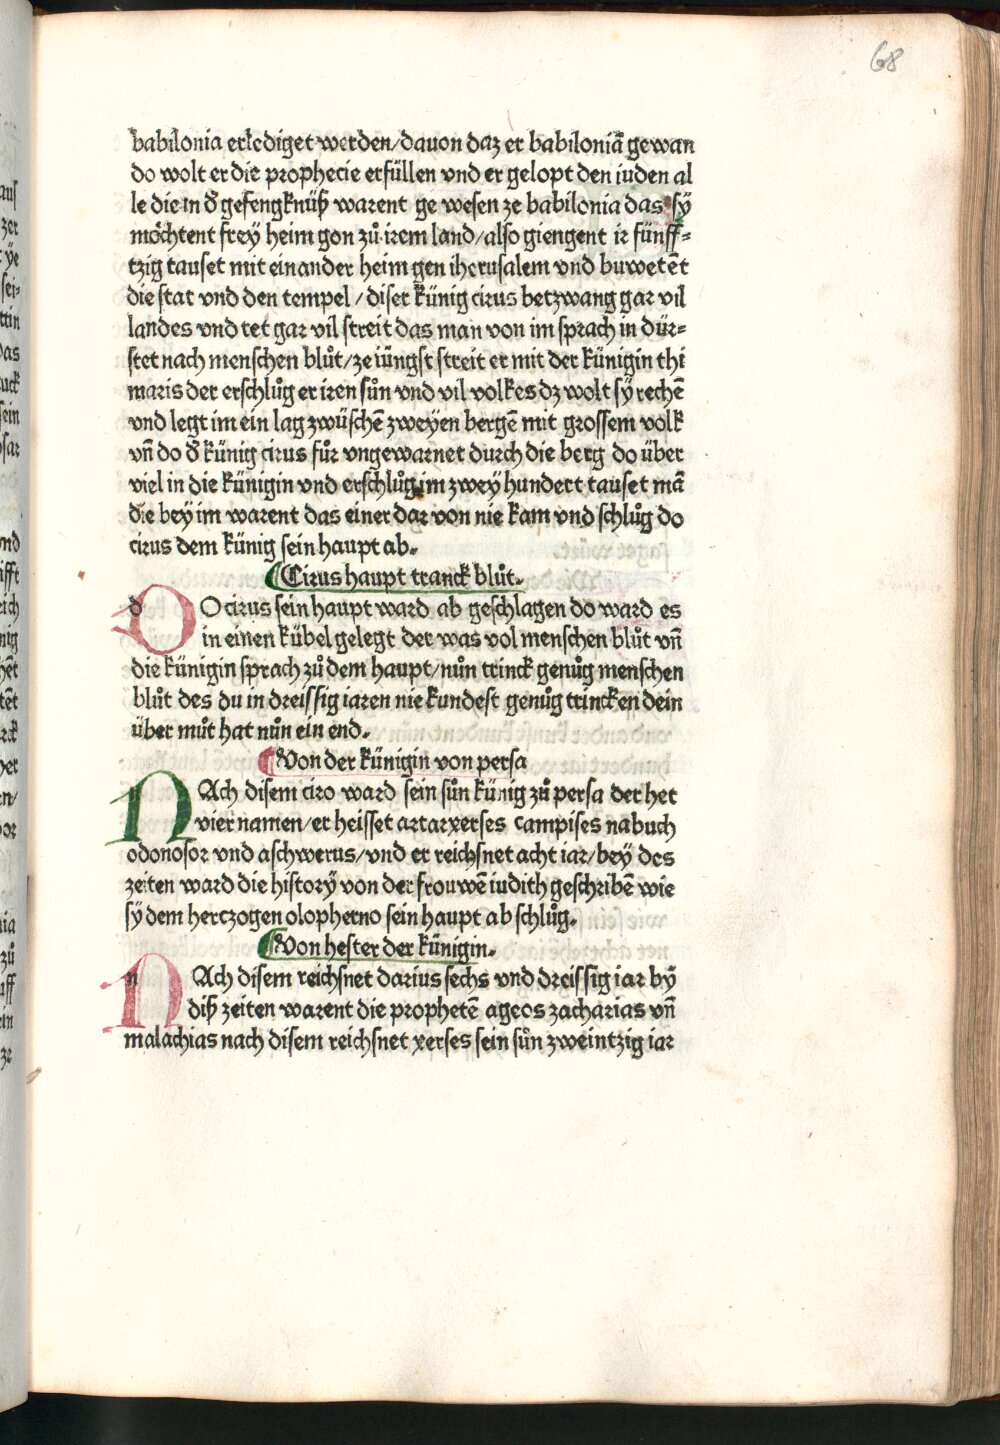 68
babilonia erlediget werden/dauon daz er babiloniā gewan
do wolt er die prophecie erfüllen vnd er gelopt den iuden al
le die in đ gefengknüß warent ge wesen ze babilonia das sÿ
möchtent freÿ heim gon zů irem land/also giengent ir fünff⸗
tzig tauset mit einander heim gen iherusalem vnd buwetēt
die stat vnd den tempel / diser künig cirus betzwang gar vil
landes vnd tet gar vil streit das man von im sprach in dür⸗
stet nach menschen blůt/ze iüngst streit er mit der künigin thi
maris der erschlůg er iren sůn vnd vil volkes dz wolt sÿ rechē
vnd legt im ein lag zwüschē zweÿen bergē mit grossem volk
vn̄ do đ künig cirus fůr vngewarnet durch die berg do über
viel in die künigin vnd erschlůg im zweÿ hundert tauset mā
die beÿ im warent das einer dar von nie kam vnd schlůg do
cirus dem künig sein haupt ab.
¶Cirus haupt tranck blůt.
d
DO cirus sein haupt ward ab geschlagen do ward es
in einen kübel gelegt der was vol menschen blůt vn̄
die künigin sprach zů dem haupt/nůn trinck genůg menschen
blůt des du in dreissig iaren nie kundest genůg trincken dein
über můt hat nůn ein end.
¶Von der künigin von persa
NAch disem ciro ward sein sůn künig zů persa der het
vier namen/er heisset artarxerses campises nabuch
odonosor vnd aschwerus/vnd er reichsnet acht iar/beÿ des
zeiten ward die historÿ von der frouwē iudith geschribē wie
sÿ dem hertzogen olopherno sein haupt ab schlůg.
¶Von hester der künigin.
n
NAch disem reichsnet darius sechs vnd dreissig iar bÿ
diß zeiten warent die prophetē ageos zacharias vn̄
malachias nach disem reichsnet xerses sein sůn zweintzig iar